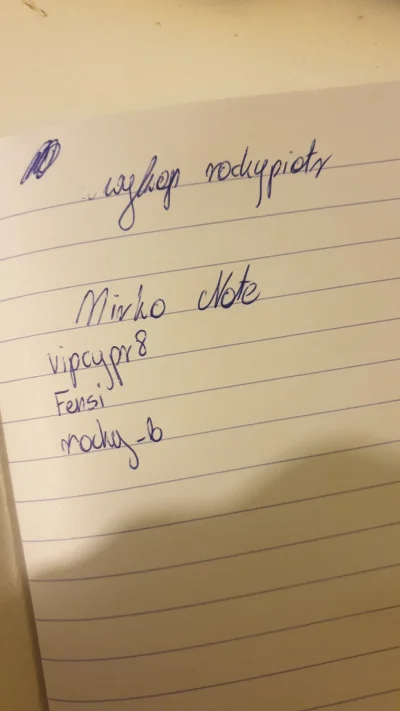 wykop rockypiotr
Mirko Note
vipcypr8
Fensi
rocky_b